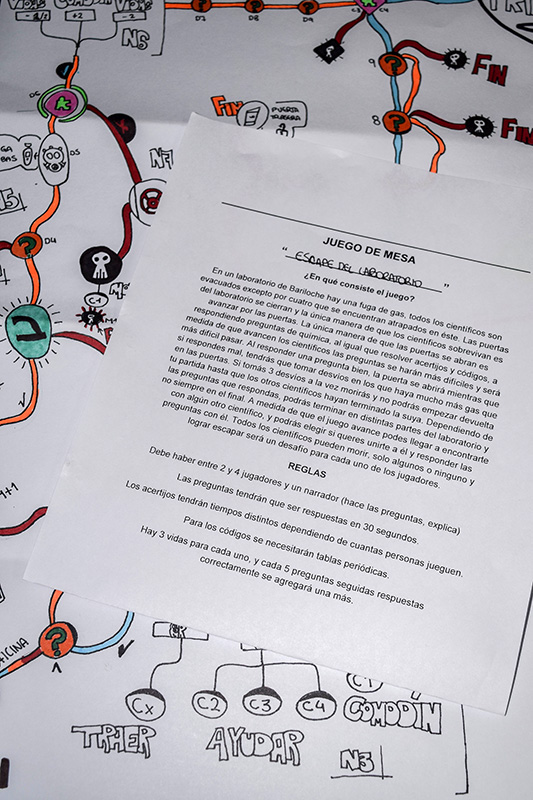 VIDAS
COMODÍN
VIDAS
+2
-2
N6
D7
D8
D9
C3
C4
9
FIN
8
FIN
FIN
PUERTA
TRASERA
D6
N7
GA
BAS
D5
D4
C1
JUEGO DE MESA
“ ESCAPE DEL LABORATORIO ”
¿En qué consiste el juego?
En un laboratorio de Bariloche hay una fuga de gas, todos los científicos son
evacuados excepto por cuatro que se encuentran atrapados en éste. Las puertas
del laboratorio se cierran y la única manera de que los científicos sobrevivan es
avanzar por las puertas. La única manera de que las puertas se abran es
respondiendo preguntas de química, al igual que resolver acertijos y códigos, a
medida de que avancen los científicos las preguntas se harán más difíciles y será
más difícil pasar. Al responder una pregunta bien, la puerta se abrirá mientras que
si respondes mal, tendrás que tomar desvíos en los que haya mucho más gas que
en las puertas. Si tomás 3 desvíos a la vez morirás y no podrás empezar devuelta
tu partida hasta que los otros científicos hayan terminado la suya. Dependiendo de
las preguntas que respondas, podrás terminar en distintas partes del laboratorio y
no siempre en el final. A medida de que el juego avance podes llegar a encontrarte
con algún otro científico, y podrás elegir si queres unirte a él y responder las
preguntas con él. Todos los científicos pueden morir, solo algunos o ninguno y
lograr escapar será un desafío para cada uno de los jugadores.
REGLAS
Debe haber entre 2 y 4 jugadores y un narrador (hace las preguntas, explica)
Las preguntas tendrán que ser respuestas en 30 segundos.
Los acertijos tendrán tiempos distintos dependiendo de cuantas personas jueguen.
Para los códigos se necesitarán tablas periódicas.
Hay 3 vidas para cada uno, y cada 5 preguntas seguidas respuestas
correctamente se agregará una más.
OFICINA
Cx
C2
C3
C4
C1
COMODÍN
TRAER
AYUDAR
N3